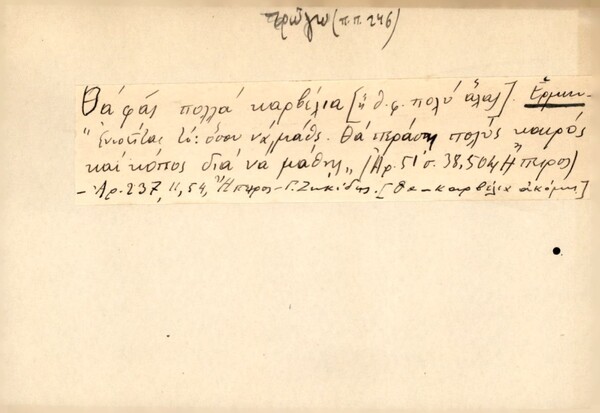 τρώγω (π.π. 246)
Θά φᾶς πολλά καρβέλια [ἤ θ. φ. πολύ ἅλας]. Ἑρμην.
ὅσου νά μάθῃς. Θά περάσῃ πολύς καιρός
καί κόπος διά νά μάθῃ„ (Ἀρ. 51 σ. 38, 504, Ἤπειρος)
- Ἀρ. 237, 11, 54, Ἤπειρος - Γ. Ζηκίδης. [Θα - καρβέλια ἀκόμη]